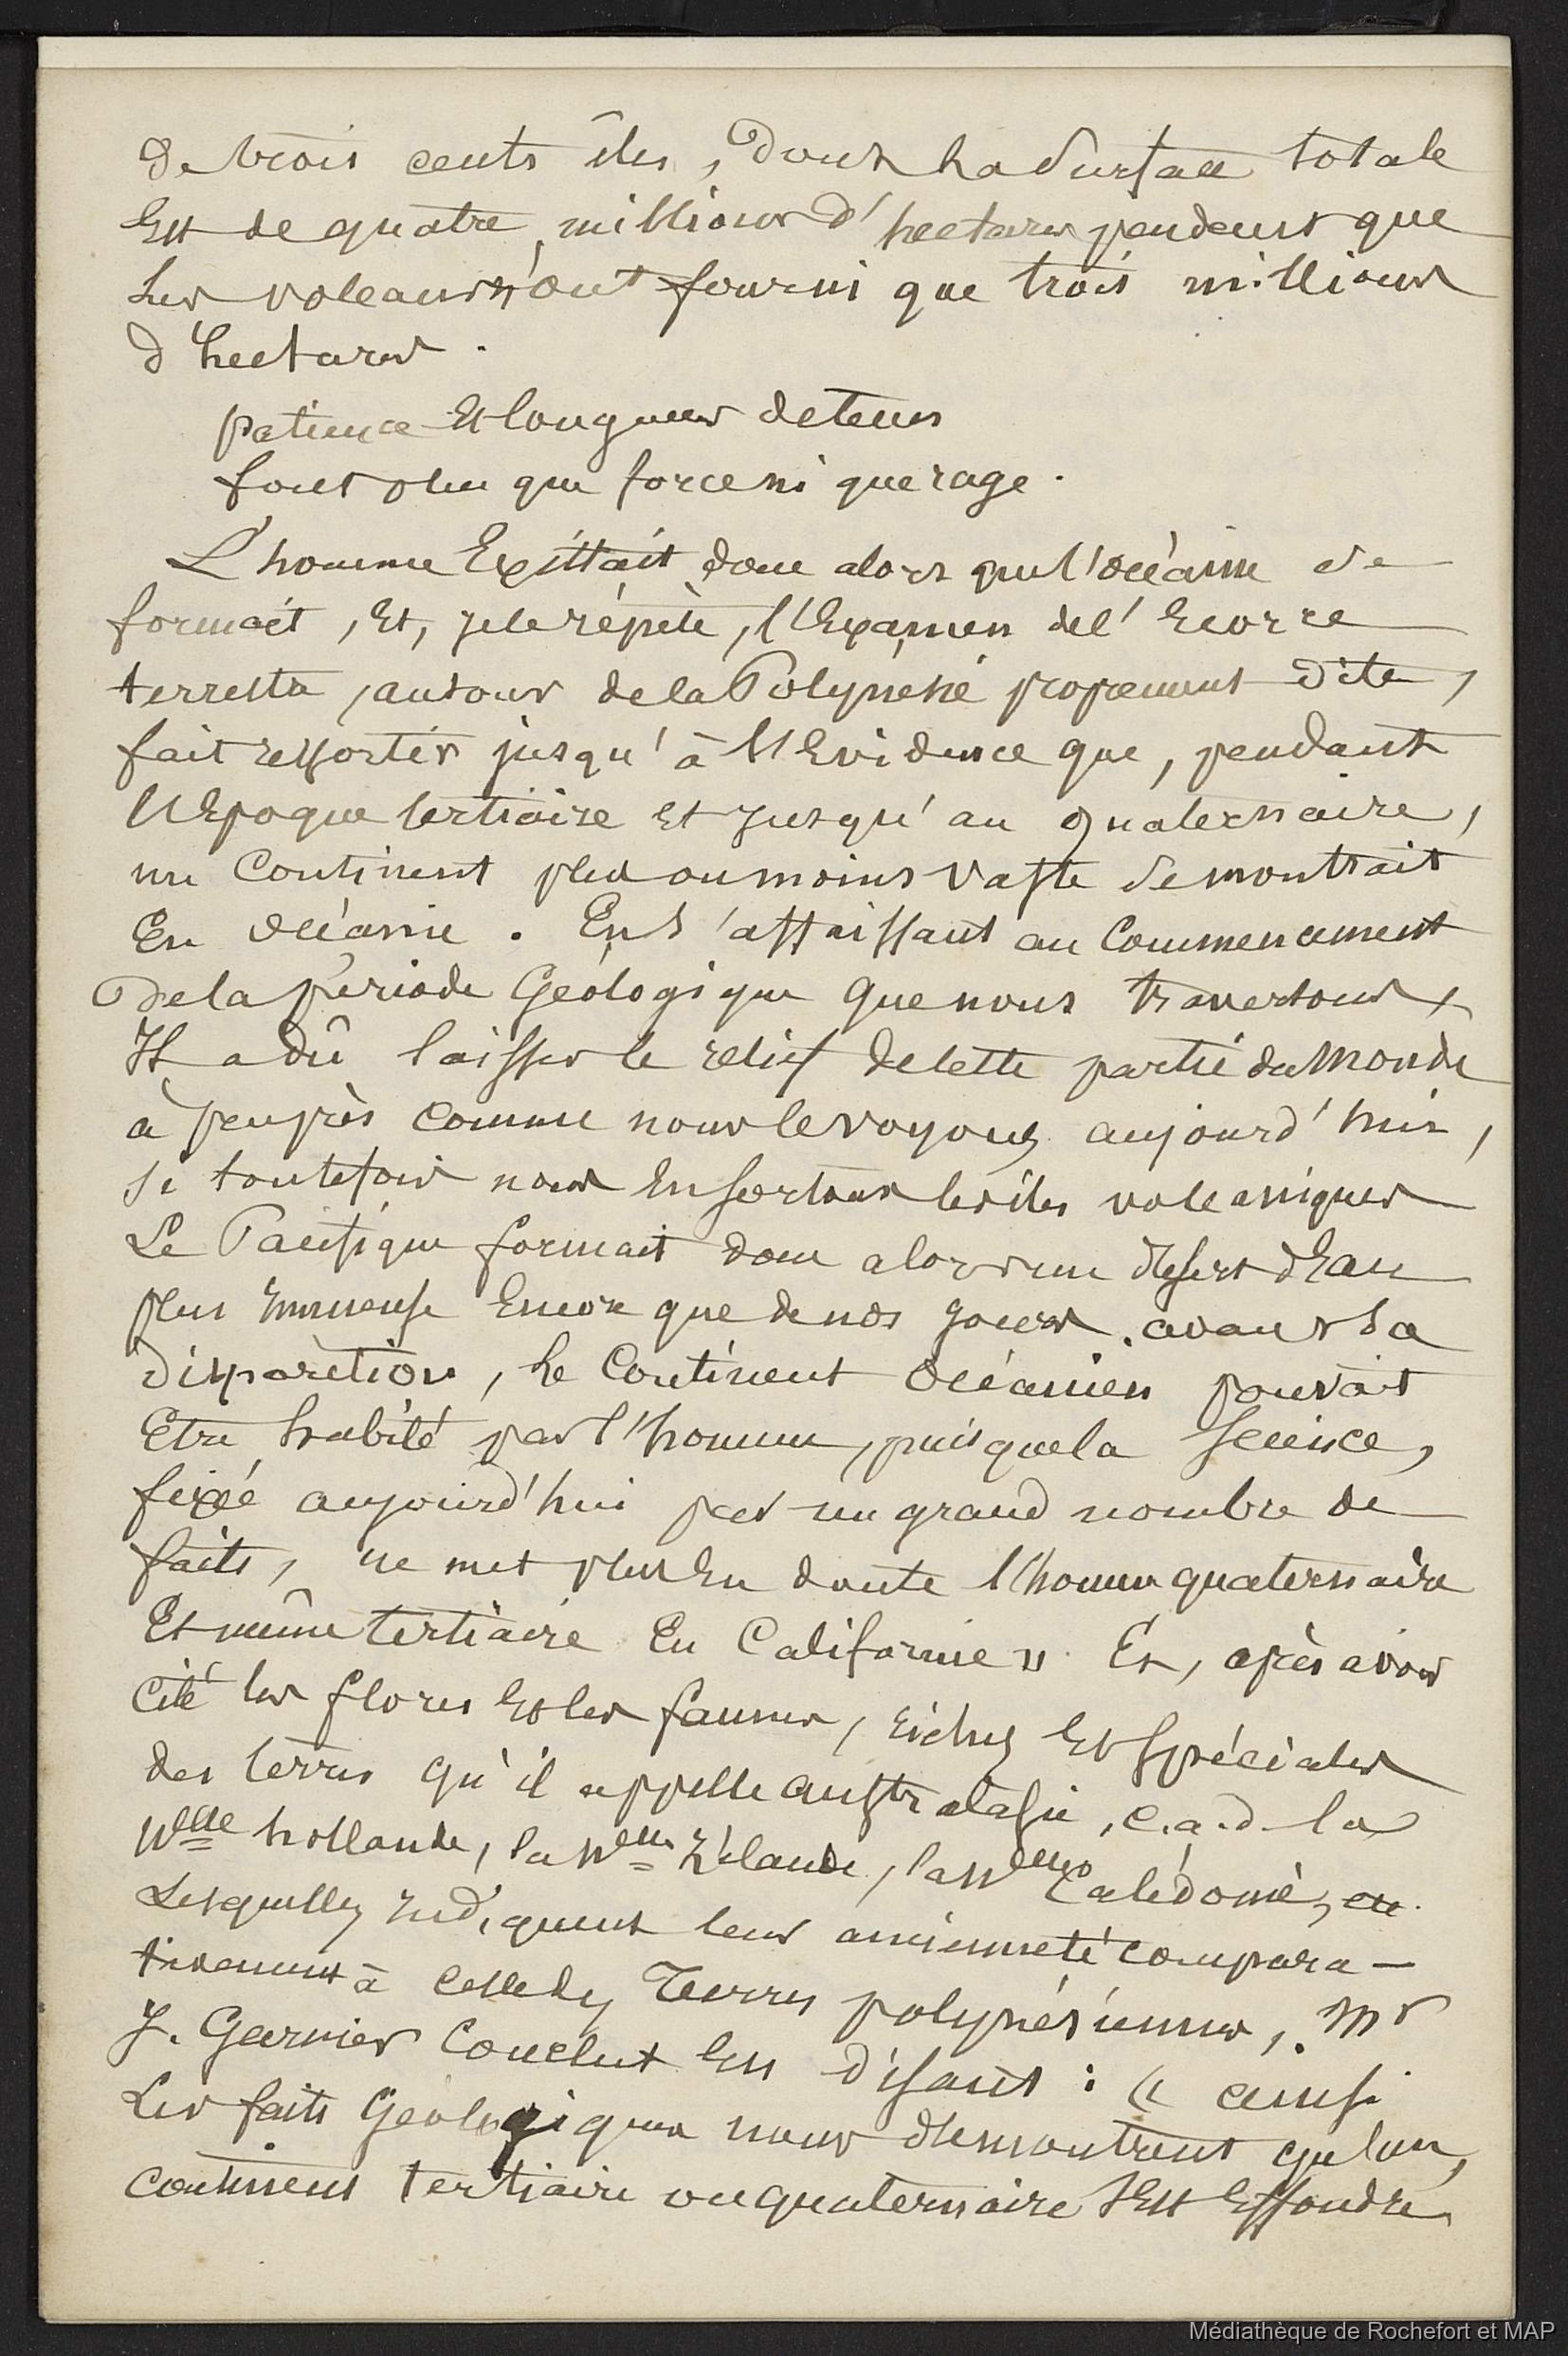 de trois cents îles, dont la surface totale
Est de quatre millions d'hectares pendant que
les volcans n'ont fourni que trois millions
d'hectares.
patience Et longueur de tems
font plus que force ni que rage.
L'homme Existait donc alors que l'océanie se
formait, Et, je le répète, l'Examen de l'Ecorce
terrestre, autour de la Polynésie proprement dite,
fait ressortir jusqu'à l'Evidence que, pendant
l'Epoque tertiaire et jusqu'au quaternaire,
un Continent plus ou moins vaste se montrait
En océanie. En s'affaissant au Commencement
de la période Géologique que nous traversons,
Il a dû laisser le relief de cette partie du Monde
à peu près comme nous le voyons aujourd'hui,
si toutefois nous En sortons les îles volcaniques
Le Pacifique formait donc alors un désert d'Eau
plus immense Encore que de nos jours. avant sa
disparition, le Continent océanien pouvait
Etre habité par l'homme, puisque la science,
fixée aujourd'hui par un grand nombre de
faits, ne met plus En doute l'homme quaternaire
Et même tertiaire En Californie » Et, après avoir
cité les flores Et les faunes, riches Et spéciales
des terres qu'il appelle australasie, c.à.d. la
Nlle hollande, la Nlle Zélande, la Nlle Calédonie,
Lesquelles indiquent leur ancienneté compara-
tivement à celle des Terres polynésiennes, Mr
J. Garnier Conclut En disant : « ainsi
Les faits Géologiques nous démontrent qu'un
continent tertiaire ou quaternaire s'Est Effondré
Médiathèque de Rochefort et MAP